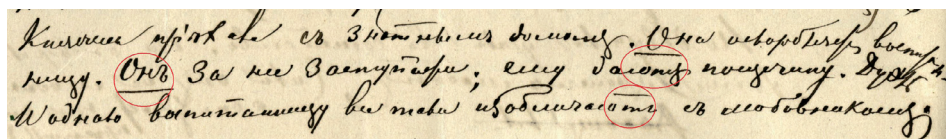 Княгиня пріѣхала съ знатнымъ домомъ. Она оскорбляетъ воспит.
ницу. Онъ за нее заступается; ему даютъ пощечину. Дуэль
И одною воспитанницу все таки изобличаютъ съ любовникомъ;